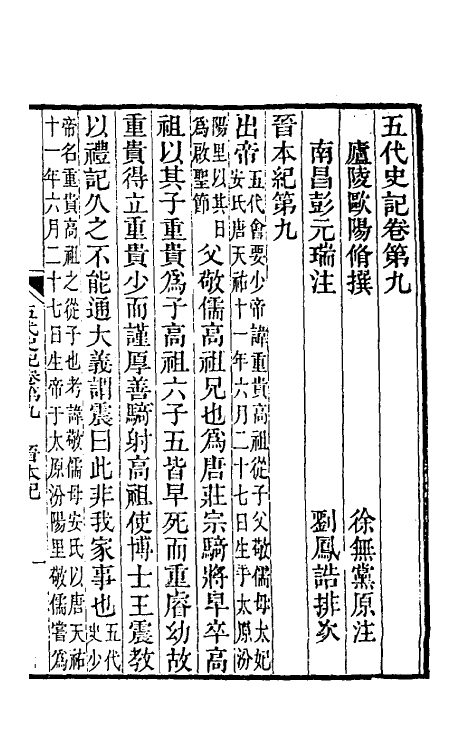 五代史記卷第九
廬陵歐陽脩撰　徐無黨原注
南昌彭元瑞注　劉鳳誥排次
晉本紀第九
出帝五代會要少帝諱重貴高祖從子父敬儒母太妃安氏唐天祐十一年六月二十七日生于太原汾
陽里以其日爲啟聖節父敬儒高祖兄也爲唐莊宗騎將早卒高
祖以其子重貴爲子高祖六子五皆早死而重睿幼故
重貴得立重貴少而謹厚善騎射高祖使博士王震教
以禮記久之不能通大義謂震曰此非我家事也五代史少
帝名重貴高祖之從子也考諱敬儒母安氏以唐天祐十一年六月二十七日生帝于太原汾陽里敬儒嘗爲
五代史記卷第九　晉本紀　一